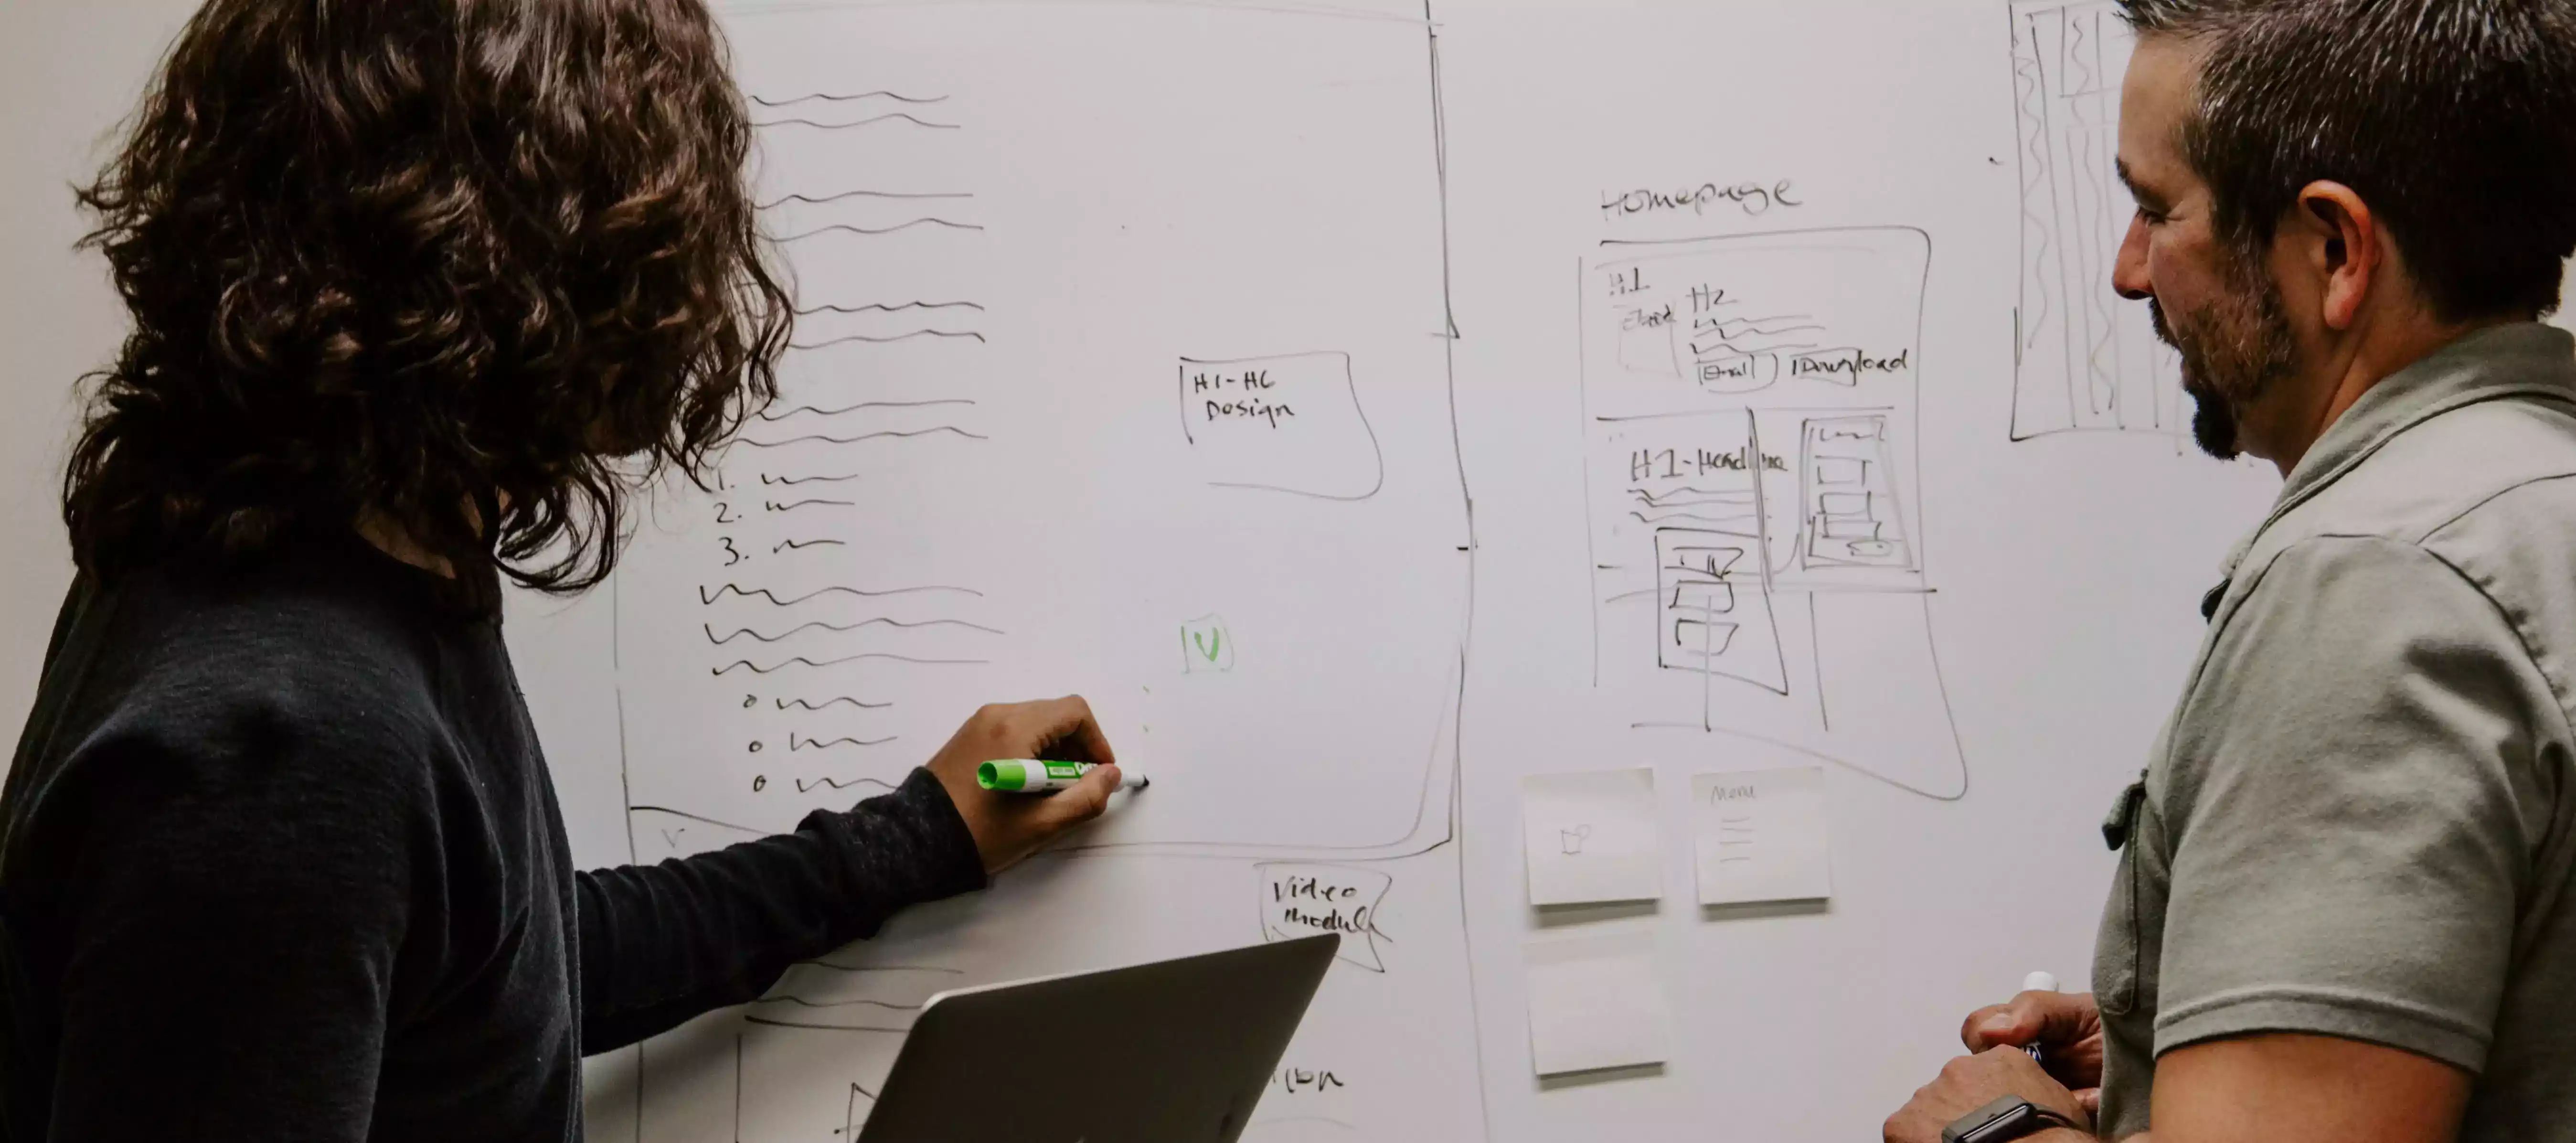 1.
2.
3.
H1-H6
Design
V
Video
Modul
Homepage
H1
H2
Email
Download
H1-Headline
Menu